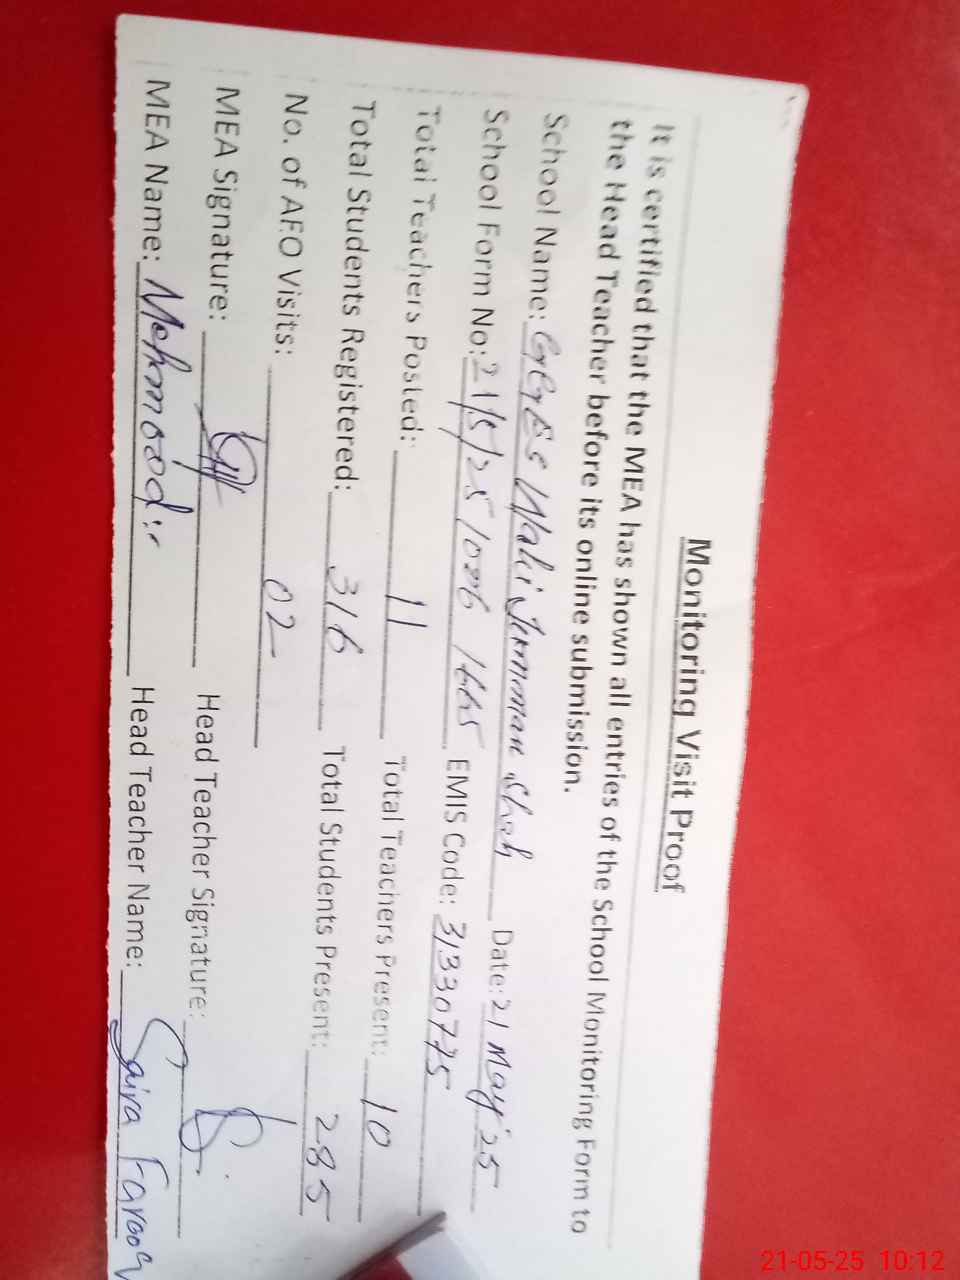 Monitoring Visit Proof
It is certified that the MEA has shown all entries of the School Monitoring Form to
the Head Teacher before its online submission.
School Name: GGES Wali Shah Date: 21 May'25
School Form No: 21/5/25/ EMIS Code: 31330775
Total Teachers Posted: 11 Total Teachers Present: 10
Total Students Registered: 316 Total Students Present: 285
No. of AEO Visits: 02
MEA Signature: Head Teacher Signature:
MEA Name: Mehmood Head Teacher Name: Saira Farooq
21-05-25 10:12